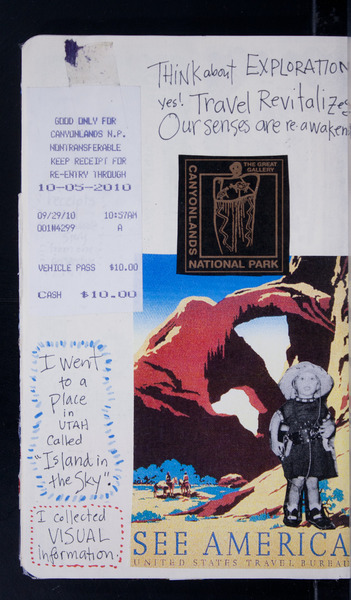 Think about EXPLORATION
yes! Travel Revitalizes
Our senses are re-awaken
GOOD ONLY FOR
CANYONLANDS N.P.
NONTRANSFERABLE
KEEP RECEIPT FOR
RE-ENTRY THROUGH
10-05-2010
09/29/10 10:57AM
001#4299 A
VEHICLE PASS $10.00
CASH $10.00
THE GREAT
GALLERY
CANYONLANDS
NATIONAL PARK
I went
to a
Place
in
UTAH
Called
"Island in
the Sky".
I collected
VISUAL
Information.
SEE AMERICA
UNITED STATES TRAVEL BUREAU